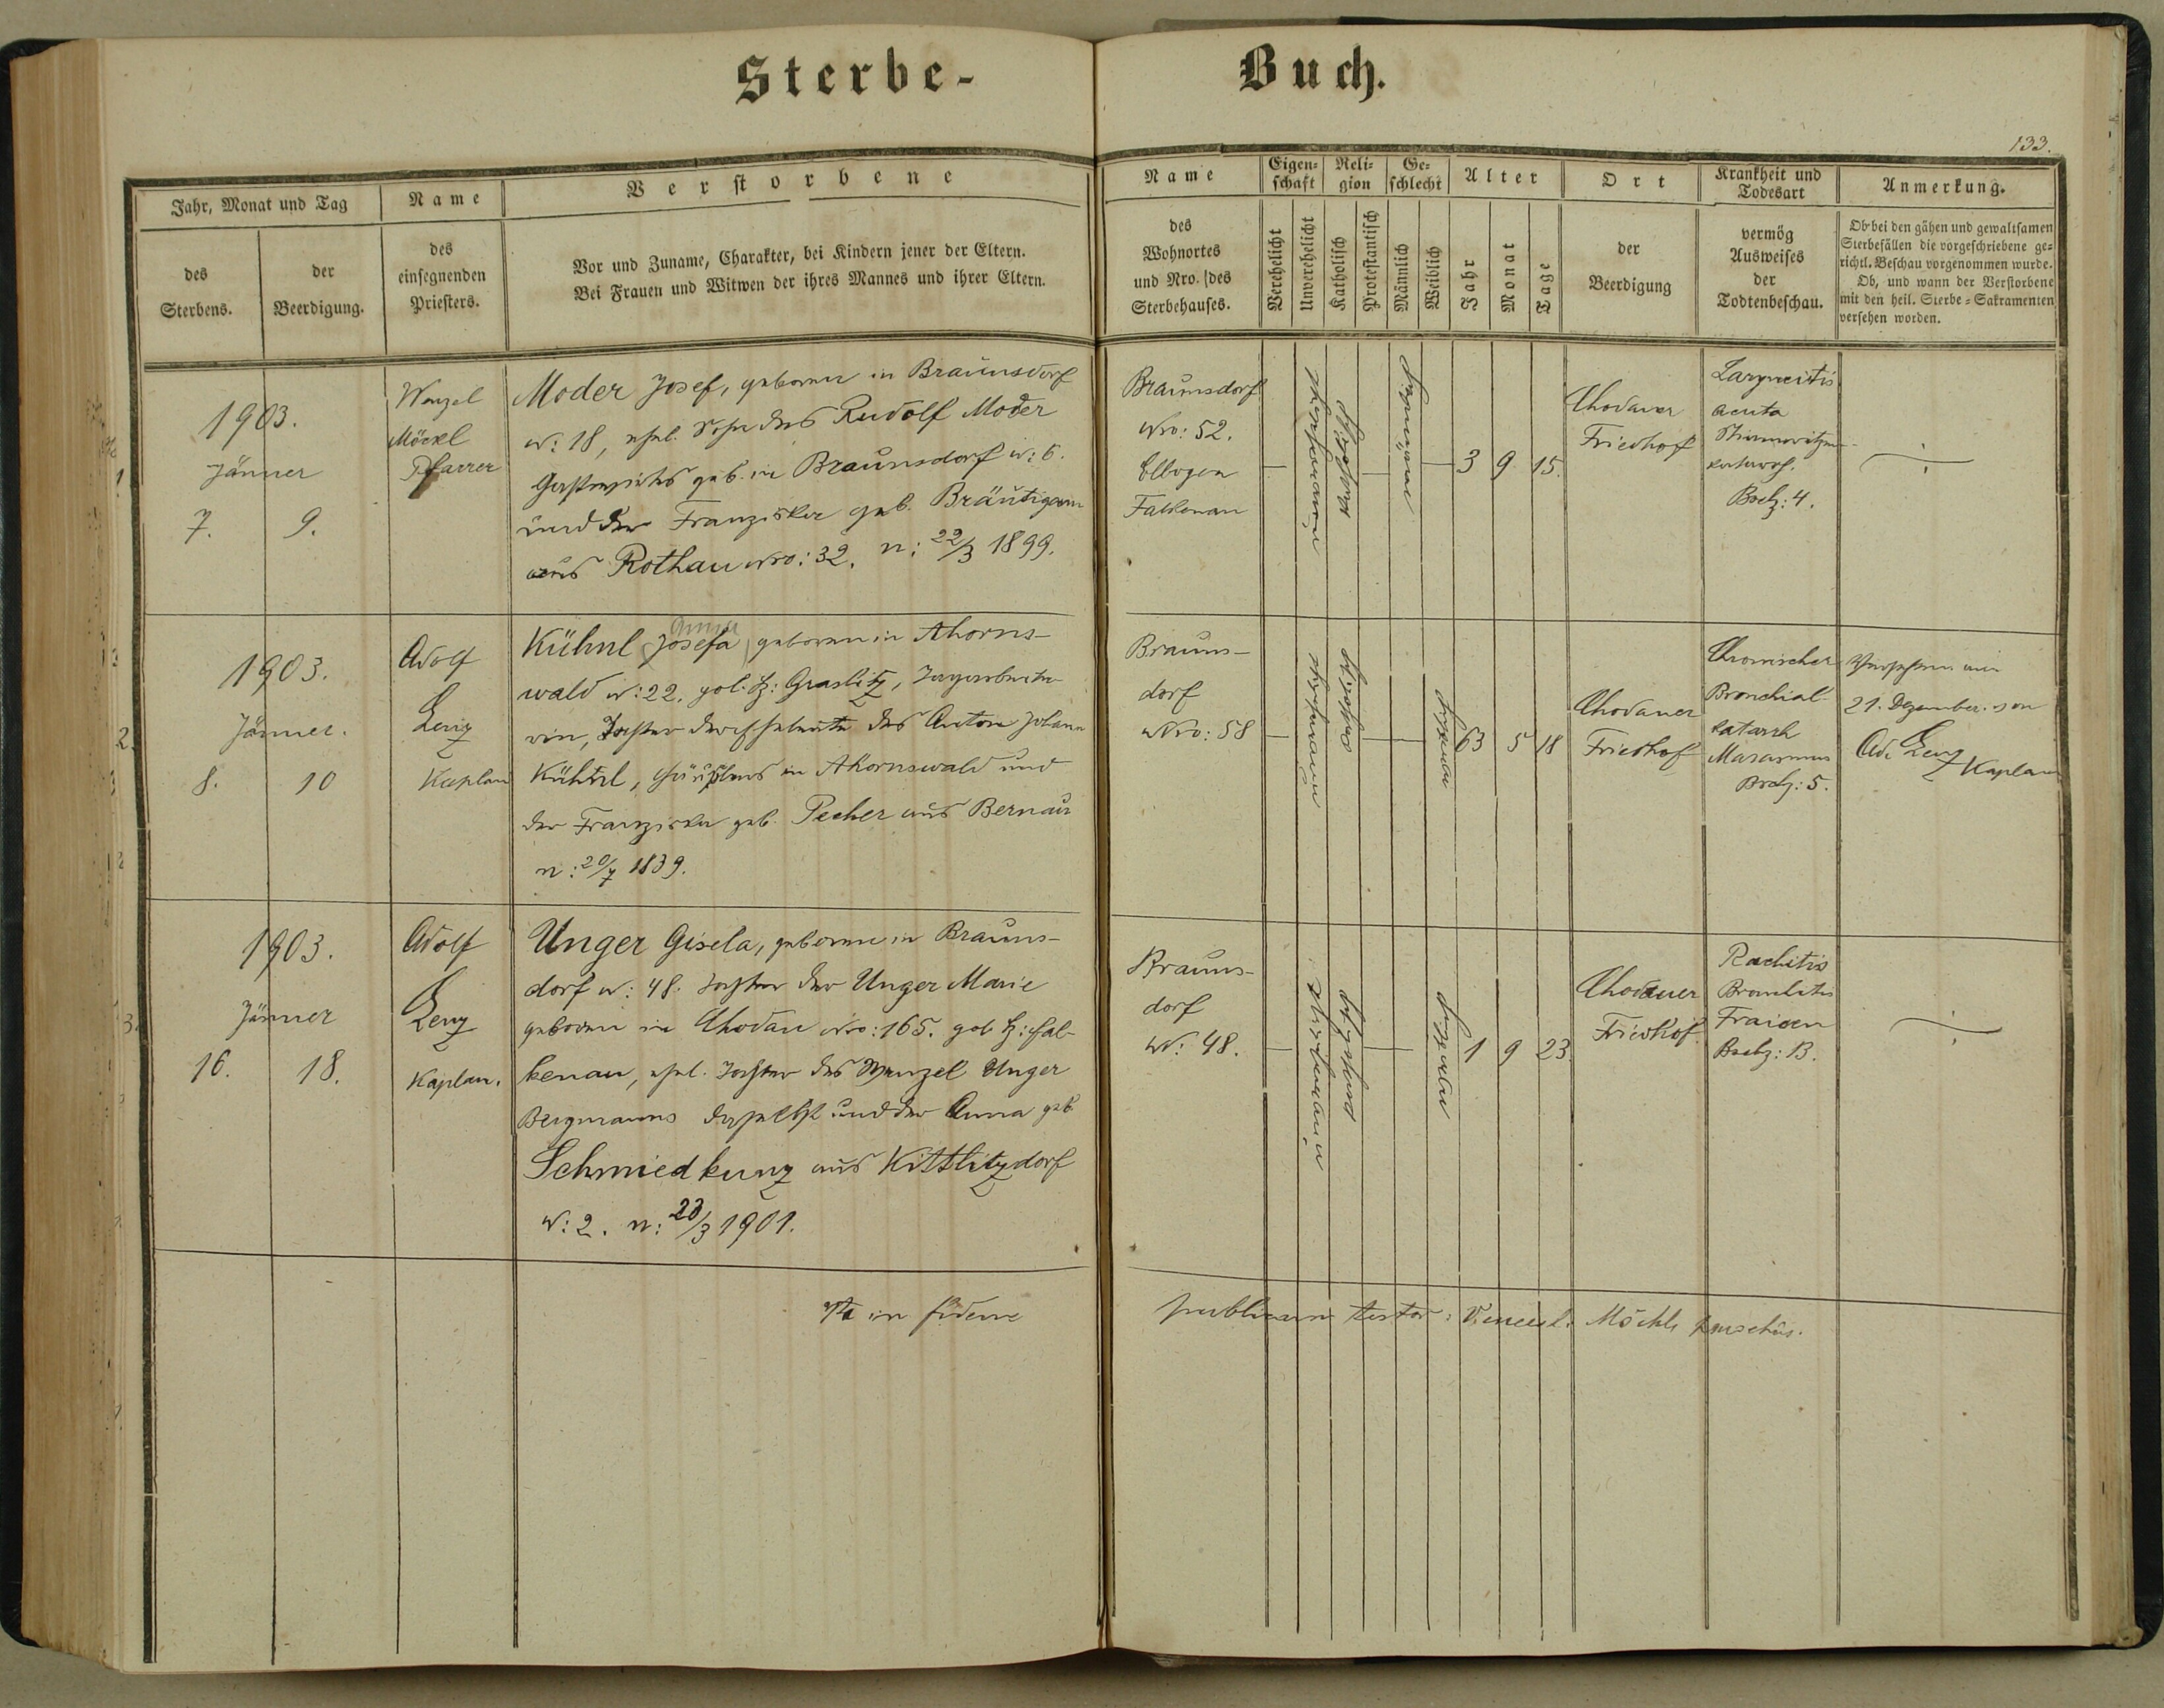 Sterbe-
Buch.
133.
Jahr, Monat und Tag
des Sterbens.
der Beerdigung.
Name
des
einsegnenden
Priesters.
Verstorbene
Vor und Zuname, Charakter, bei Kindern jener der Eltern.
Bei Frauen und Witwen der ihres Mannes und ihrer Eltern.
Name
des
Wohnortes
und Nro. des
Sterbehauses.
Eigenschaft
Verehelicht
Unverehelicht
Religion
Katholisch
Protestantisch
Geschlecht
Männlich
Weiblich
Alter
Jahr
Monat
Tage
Ort
der
Beerdigung
Krankheit und
Todesart
vermög
Ausweises
der
Todtenbeschau.
Anmerkung.
Ob bei den gähen und gewaltsamen
Sterbefällen die vorgeschriebene ge-
richtl. Beschau vorgenommen wurde.
Ob, und wann der Verstorbene
mit den heil. Sterbe-Sakramenten
versehen worden.
1.
1903.
Jänner
7. 9.
Wenzel
Möckl
Pfarrer
Moder Josef, geboren in Braunsdorf
N: 18, ehel. Sohn des Rudolf Moder
Gastwirths geb. in Braunsdorf N: 6.
und der Franziska geb. Bräutigam
aus Rothau Nro: 32. n: 22/3 1899.
Braunsdorf
Nro: 52.
Elbogen
Falkenau
unverehelicht
katholisch
männlich
3 9 15.
Chodauer
Friedhof
Laryncitis
acuta
Bschz: 4.
2.
1903.
Jänner.
8. 10
Adolf
Lenz
Kaplan
Anna
Kühnl Josefa, geboren in Ahorns-
wald N: 22. pol. Bz: Graslitz, Tagarbeite-
rin, Tochter der Eheleute des Anton Johann
Kühnl, Häuslers in Ahornswald und
der Franziska geb. Pecher aus Bernau
n: 20/7 1839.
Brauns-
dorf
Nro: 58
unverehelicht
katholisch
weiblich
63 5 18
Chodauer
Friedhof
Chronischer
Bronchial-
katarrh
Marasmus
Bschz: 5.
Versehen am
21. Dezember von
Ad. Lenz
Kaplan
3.
1903.
Jänner
16. 18.
Adolf
Lenz
Kaplan.
Unger Gisela, geboren in Brauns-
dorf N: 48. Tochter der Unger Marie
geboren in Chodau Nro: 165. pol. Bz: Fal-
kenau, ehel. Tochter des Wenzel Unger
Bergmanns daselbst und der Anna geb.
Schmiedkunz aus Kittlitzdorf
N: 2. n: 23/3 1901.
Brauns-
dorf
N: 48.
unverehelicht
katholisch
weiblich
1 9 23.
Chodauer
Friedhof.
Rachitis
Bronchitis
Fraisen
Bschz: 13.
in fidem
publicam testor: Vencesl. Möckl parochus.